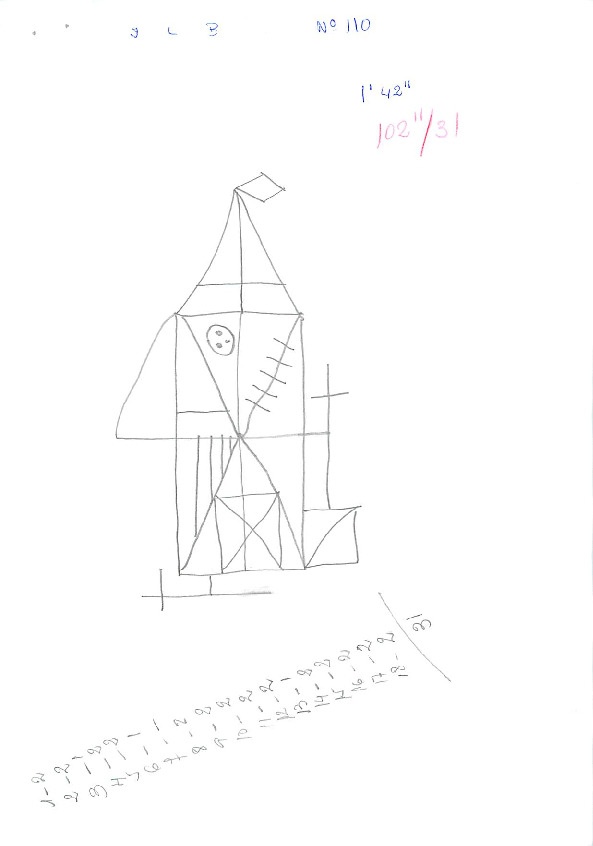 J L B
Nº 110
1' 42"
102"/31
1-2
2-2
3-1
4-2
5-2
6-1
7-1
8-2
9-2
10-2
11-2
12-2
13-2
14-2
16-2
17-2
18-2
31